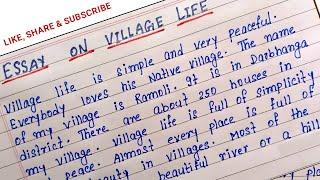 LIKE, SHARE & SUBSCRIBE
ESSAY ON VILLAGE LIFE
Village life is simple and very peaceful.
Everybody loves his Native village. The name
of my village is Ramoli. It is in Darbhanga
district. There are about 250 houses in
my village. Village life is full of simplicity
peace. Almost every place is full of
in villages. Most of the
beautiful river or a hill